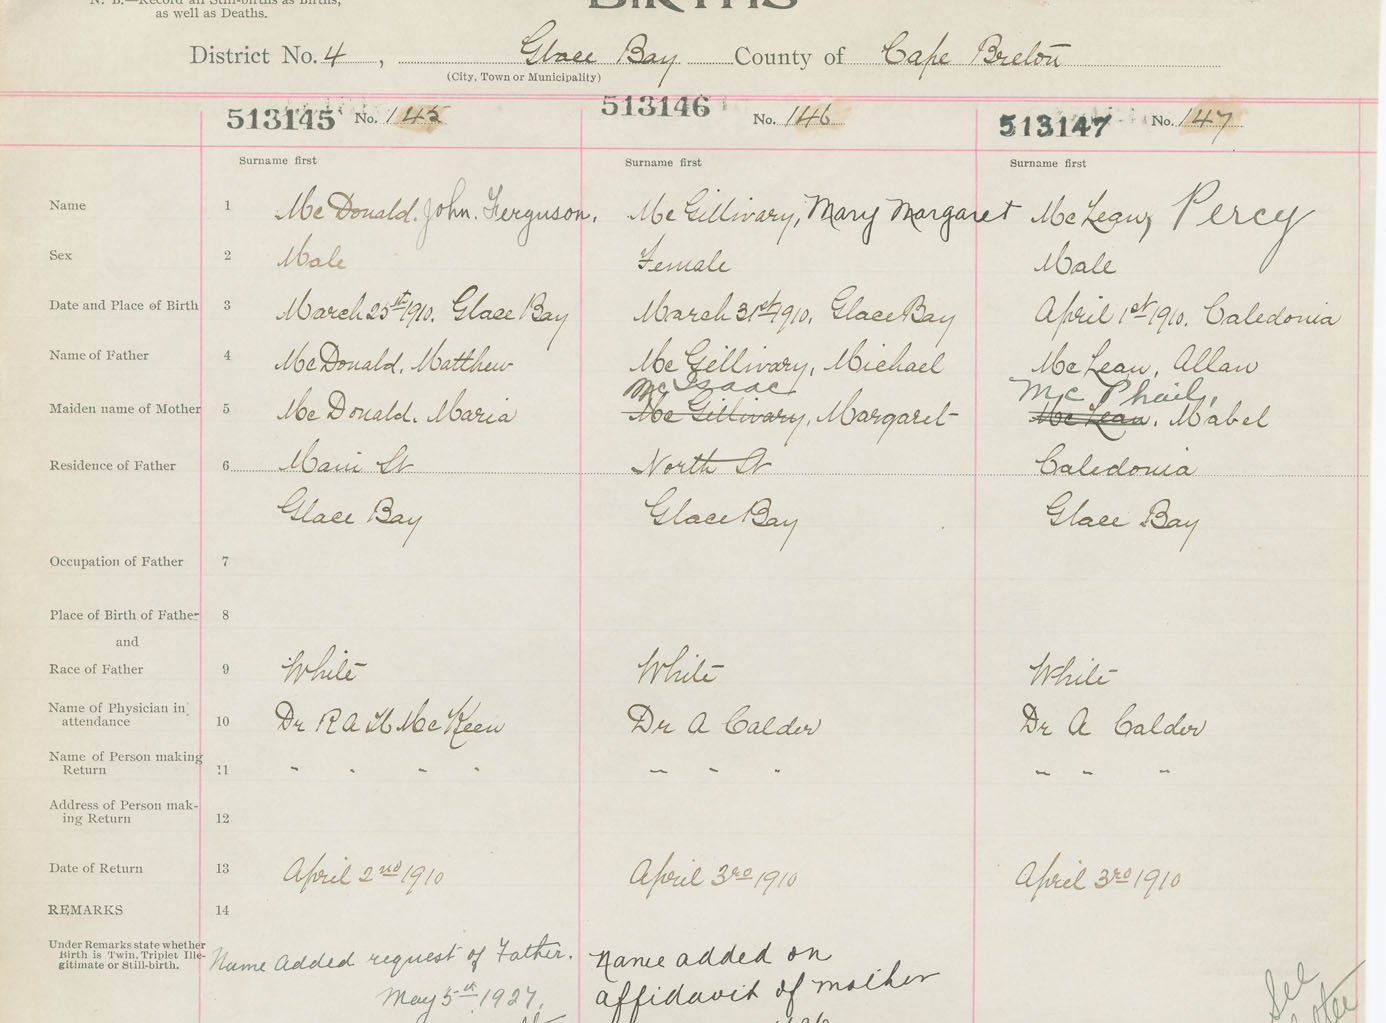 N. B.—Record all Still-births as Births,
as well as Deaths.
BIRTHS
District No. 4, Glace Bay County of Cape Breton
(City, Town or Municipality)
513145 No. 145 513146 No. 146 513147 No. 147
Surname first Surname first Surname first
Name 1 McDonald. John. Ferguson. McGillivary, Mary Margaret McLean, Percy
Sex 2 Male Female Male
Date and Place of Birth 3 March 25th 1910. Glace Bay March 31st 1910, Glace Bay April 1st 1910. Caledonia
Name of Father 4 McDonald, Matthew McGillivary, Michael McLean, Allan
McIsaac McPhail,
Maiden name of Mother 5 McDonald. Maria McGillivary, Margaret McLean, Mabel
Residence of Father 6 Main St North St Caledonia
Glace Bay Glace Bay Glace Bay
Occupation of Father 7
Place of Birth of Father 8
and
Race of Father 9 White White White
Name of Physician in
attendance 10 Dr R A H McKeen Dr A Calder Dr A Calder
Name of Person making
Return 11 " " " " " " " " " "
Address of Person mak-
ing Return 12
Date of Return 13 April 2nd 1910 April 3rd 1910 April 3rd 1910
REMARKS 14
Under Remarks state whether
Birth is Twin, Triplet Ille-
gitimate or Still-birth.
Name Added request of Father. Name added on
May 5th 1927. affidavit of mother
See